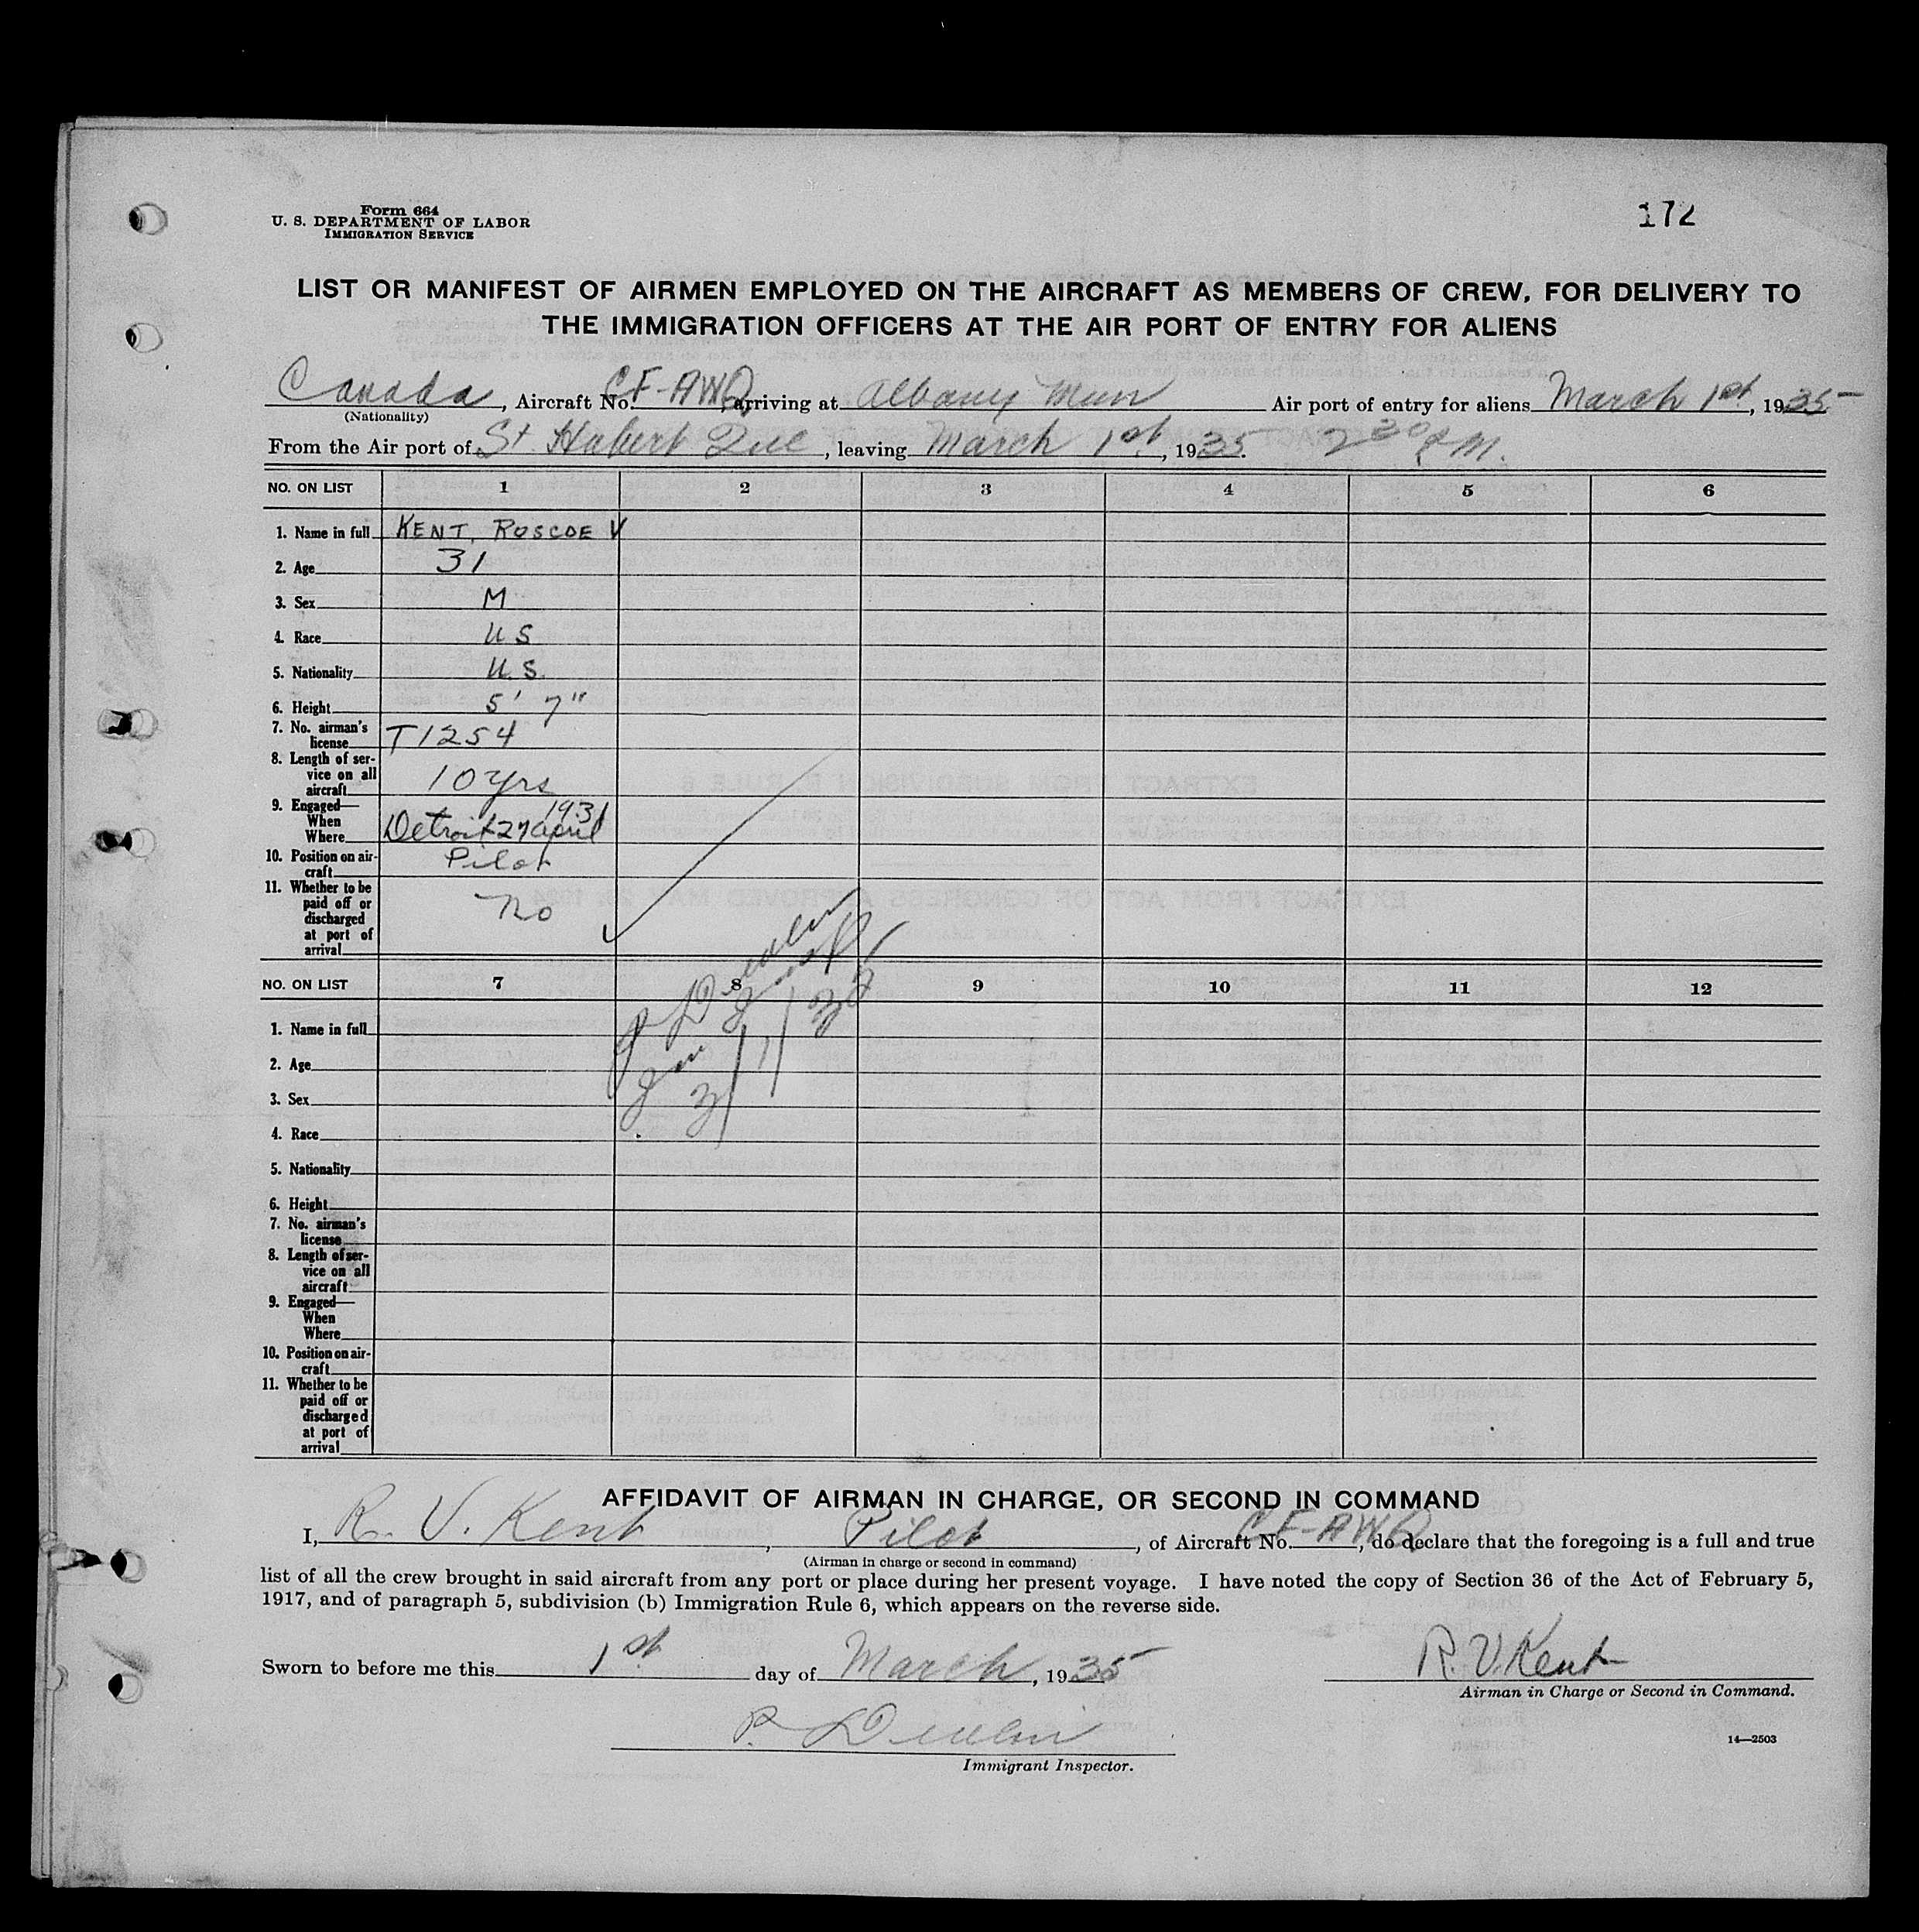 Form 664
U. S. DEPARTMENT OF LABOR
IMMIGRATION SERVICE
172
LIST OR MANIFEST OF AIRMEN EMPLOYED ON THE AIRCRAFT AS MEMBERS OF CREW, FOR DELIVERY TO
THE IMMIGRATION OFFICERS AT THE AIR PORT OF ENTRY FOR ALIENS
Canada, Aircraft No. CF-AWQ, arriving at Albany Mun Air port of entry for aliens March 1st, 1935
(Nationality)
From the Air port of St Hubert Que, leaving March 1st, 1935. 2 30 P.M.
NO. ON LIST 1 2 3 4 5 6
1. Name in full KENT, ROSCOE V
2. Age 31
3. Sex M
4. Race U S
5. Nationality U. S.
6. Height 5' 7"
7. No. airman's
license T1254
8. Length of ser-
vice on all
aircraft 10 yrs
9. Engaged— 1931
When
Where Detroit 27 April
10. Position on air-
craft Pilot
11. Whether to be
paid off or
discharged
at port of
arrival No
P Devlin
NO. ON LIST 7 8 9 10 11 12
1. Name in full
2. Age
3. Sex
4. Race
5. Nationality
6. Height
7. No. airman's
license
8. Length of ser-
vice on all
aircraft
9. Engaged—
When
Where
10. Position on air-
craft
11. Whether to be
paid off or
discharged
at port of
arrival
AFFIDAVIT OF AIRMAN IN CHARGE, OR SECOND IN COMMAND
I, R. V. Kent, Pilot, of Aircraft No. CF-AWQ, do declare that the foregoing is a full and true
(Airman in charge or second in command)
list of all the crew brought in said aircraft from any port or place during her present voyage. I have noted the copy of Section 36 of the Act of February 5,
1917, and of paragraph 5, subdivision (b) Immigration Rule 6, which appears on the reverse side.
Sworn to before me this 1st day of March, 1935
R. V. Kent
Airman in Charge or Second in Command.
P. Devlin
Immigrant Inspector.
14—2503